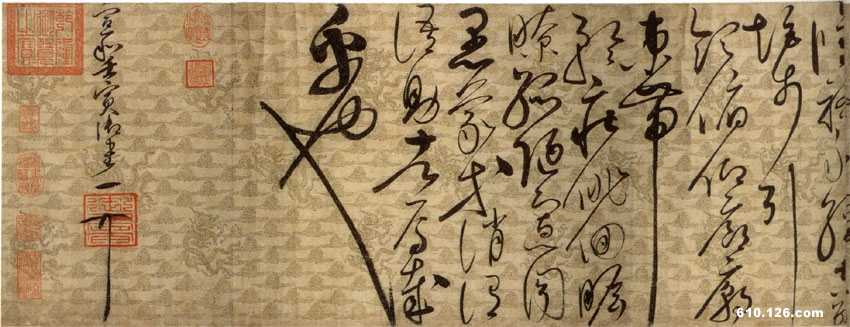 脩祜永綏吉劭
矩步引
領俯仰廊廟
束帶
矜莊徘徊瞻
眺孤陋寡聞
愚蒙等誚謂
語助者焉哉
乎也
宣和壬寅御書
御書
610.126.com